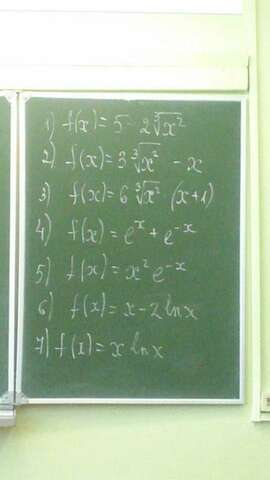 1) f(x) = 5 - 2∛x²
2) f(x) = 3∛x² - x
3) f(x) = 6∛x² · (x+1)
4) f(x) = eˣ + e⁻ˣ
5) f(x) = x² e⁻ˣ
6) f(x) = x - 2 ln x
7) f(x) = x ln x